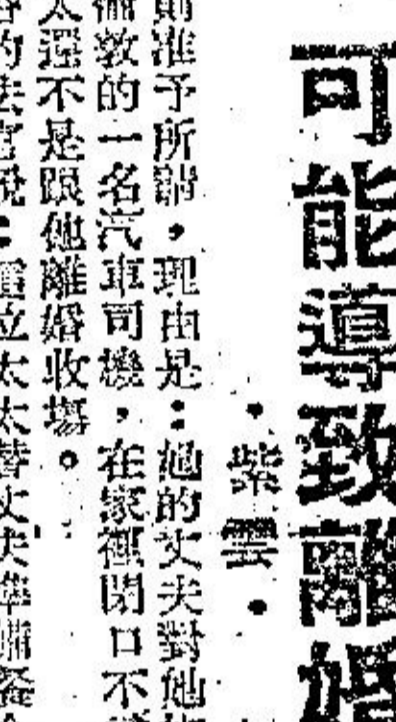 可能導致離婚
・紫雲・
則准予所請,理由是:她的丈夫對她
倫敦的一名汽車司機,在家裡閉口不
太還不是跟他離婚收場。
的法官說:這位太太替丈夫準備